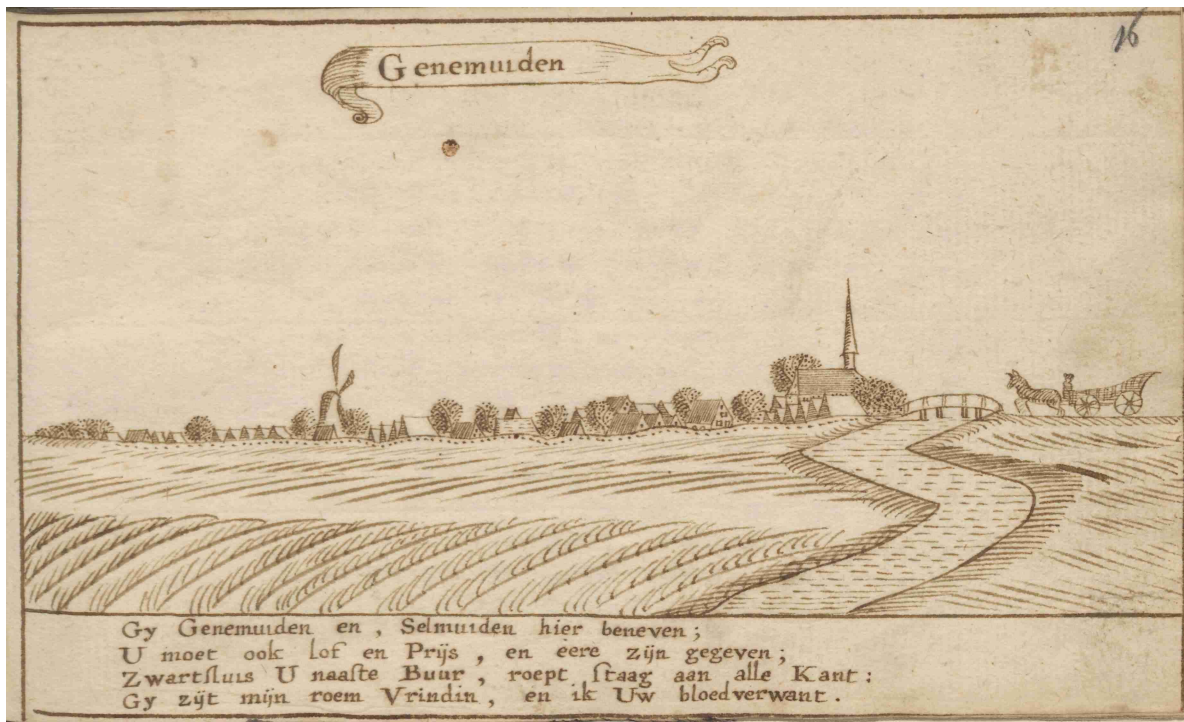 16
Genemuiden
Gy Genemuiden en, Selmuiden hier beneven;
U moet ook lof en Prijs, en eere zijn gegeven;
Zwartſluis U naaſte Buur, roept ſtaag aan alle Kant:
Gy zÿt mijn roem Vrindin, en ik Uw bloedverwant.